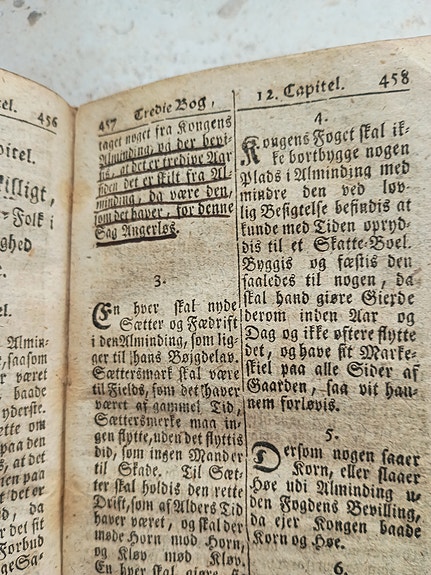 el. 456
pitel.
silligt,
Folk i
ghed
el.
Almin-
e, saasom
r været
baade
yderste.
ette om
paa den
s, at det
nen paa
et det er
d, da
er det fit
Forbud
geSa-
457 Tredie Bog,
taget noget fra Kongens
Alminding, og der bevi-
sis, at det er tredive Aar
siden det er skilt fra Al-
minding, da være den,
som det haver, for denne
Sag Angerløs.
3.
En hver skal nyde
Sætter og Fædrift
i den Alminding, som lig-
ger til hans Bøigdelav.
Sættersmark skal være
til Fields, som det haver
været af gammel Tid,
Sættersmerke maa in-
gen flytte, uden det flyttis
did, som ingen Mander
til Skade. Til Sæt-
ter skal holdis den rette
Drift, som af Alders Tid
haver været, og skal der
møde Horn mod Horn,
og Kløv mod Kløv.
En hver skal giøre
12. Capitel. 458
4.
Kongens Foget skal ik-
ke bortbygge nogen
Plads i Alminding med
mindre den ved lov-
lig Besigtelse befindis at
kunde med Tiden opryd-
dis til et Skatte-Boel.
Byggis og fæstis den
saaledes til nogen, da
skal hand giøre Gierde
derom inden Aar og
Dag og ikke oftere flytte
det, og have sit Marke-
skiel paa alle Sider af
Gaarden, saa vit han-
nem forløvis.
5.
Dersom nogen saaer
Korn, eller slaaer
Høe udi Alminding u-
den Fogdens Bevilling,
da ejer Kongen baade
Korn og Høe.
6.